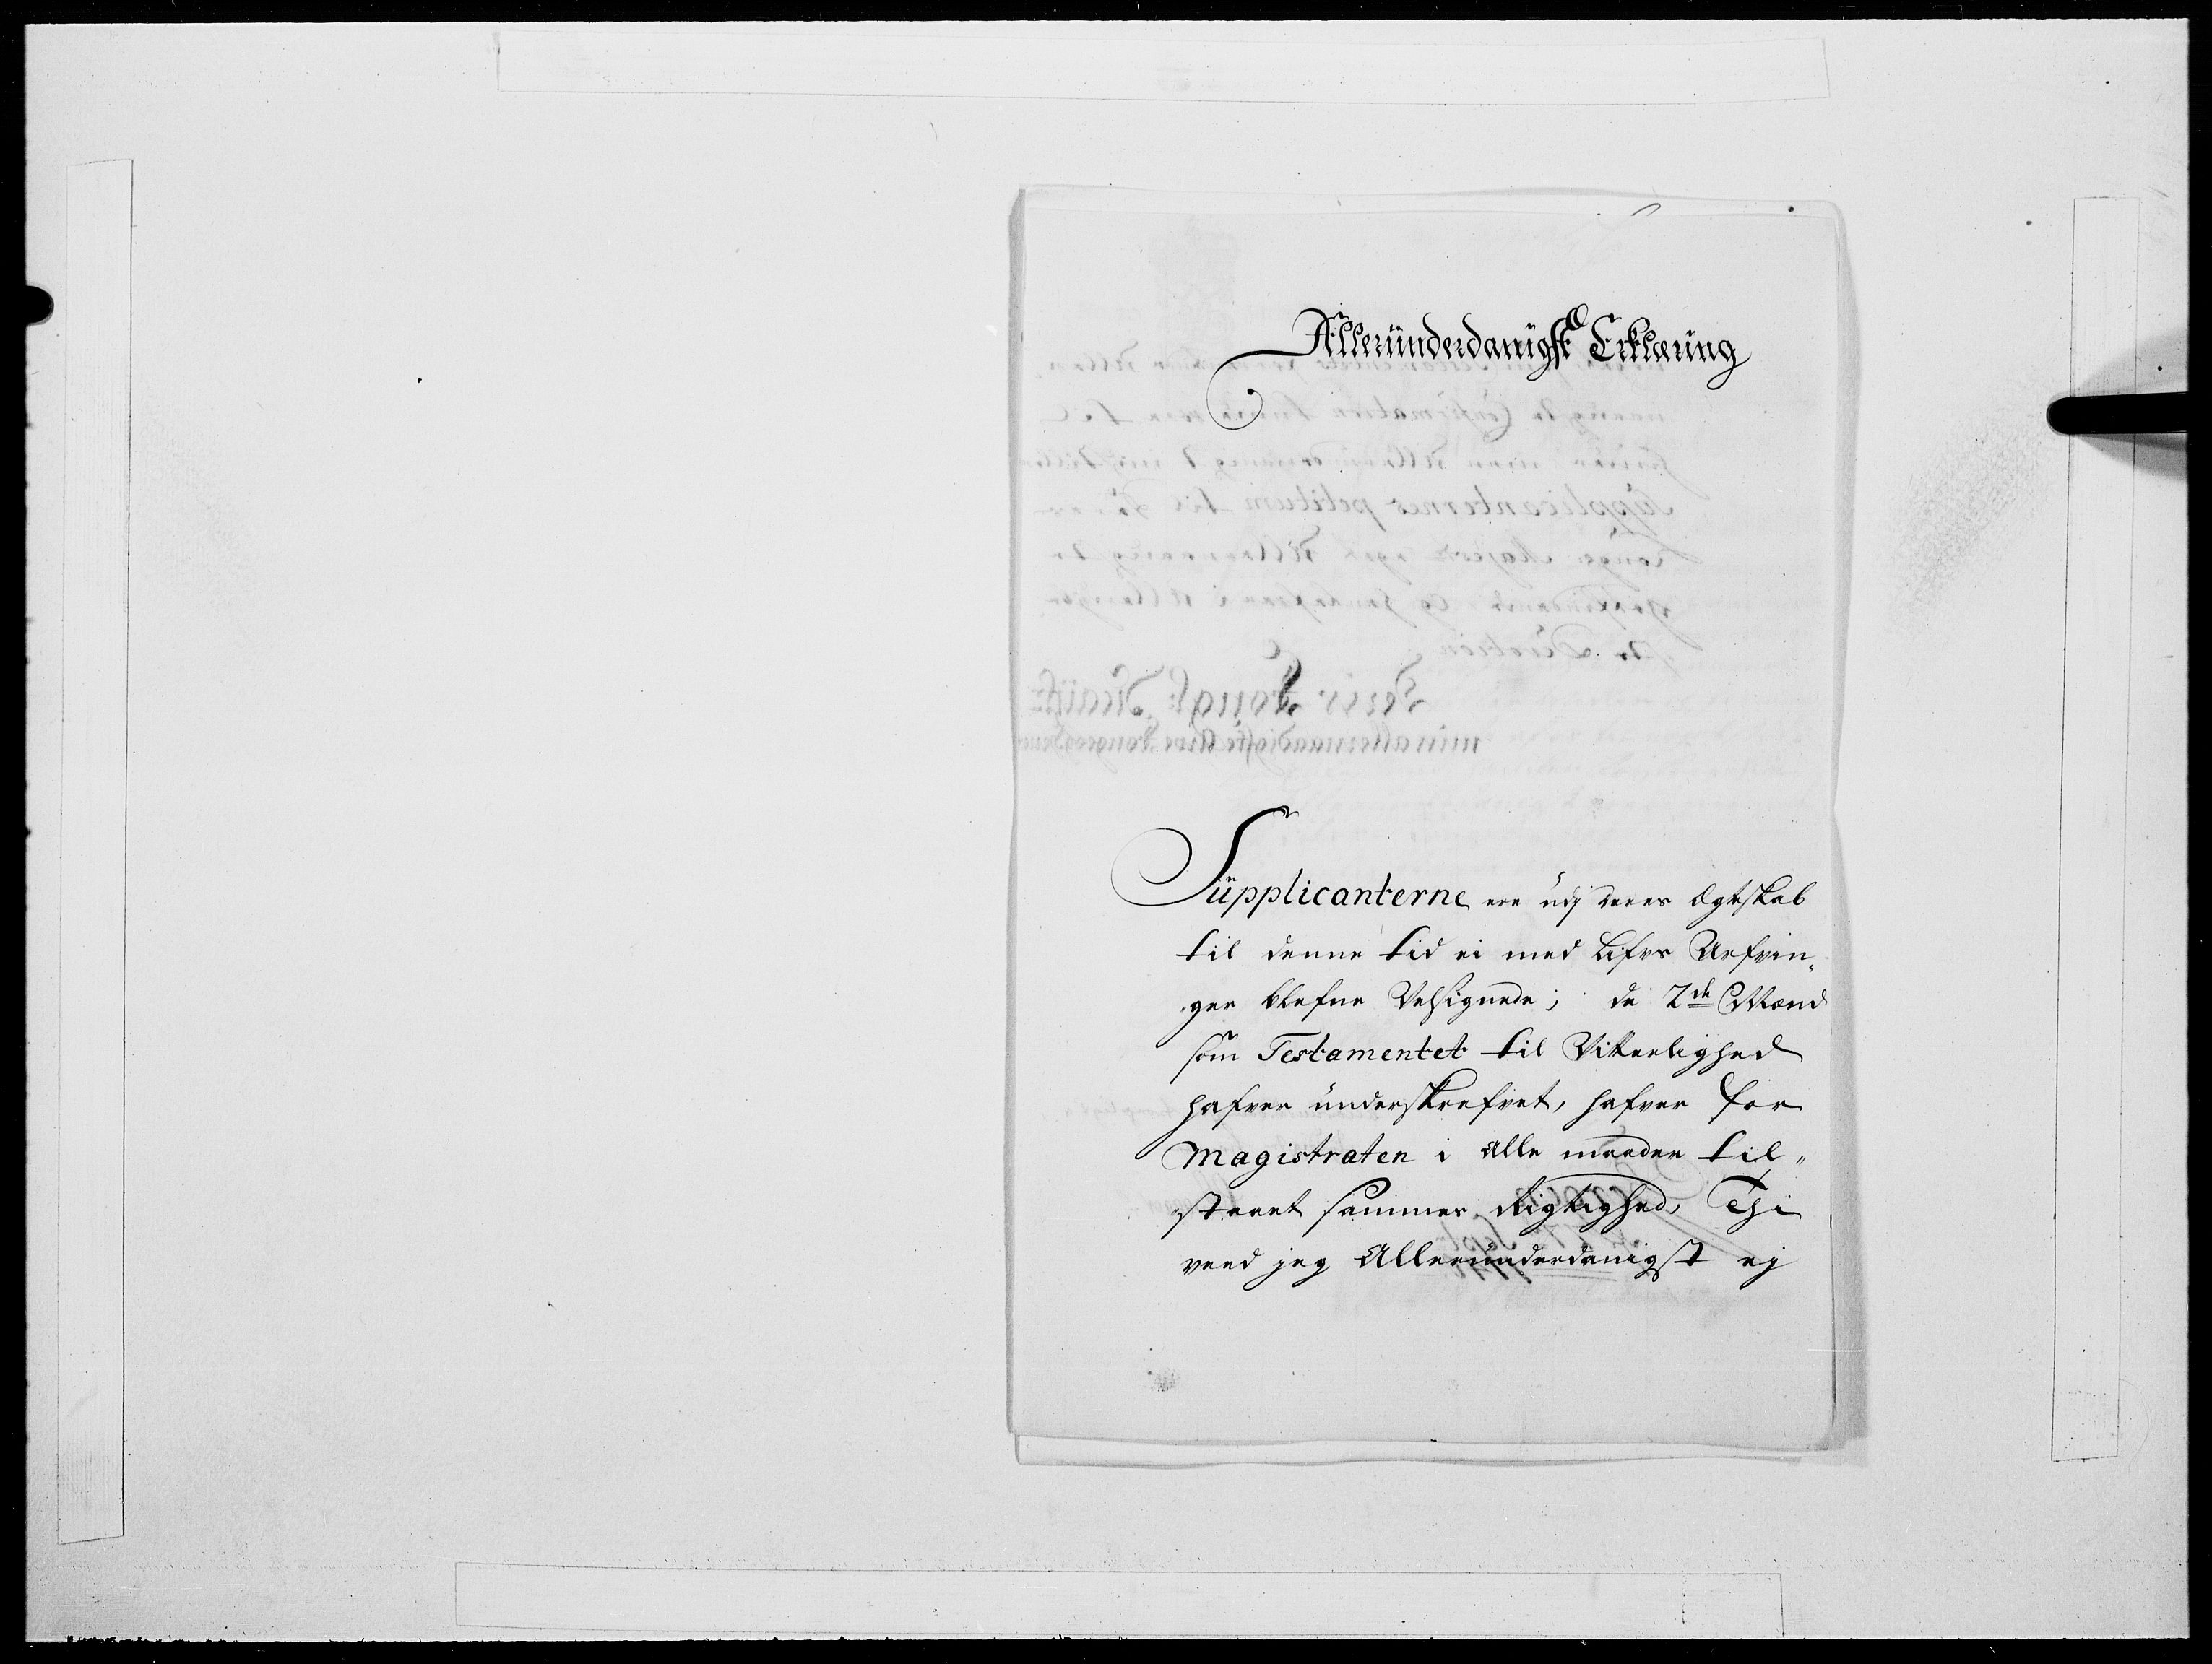 Alleründerdanigst Erklæring
Süpplicanterne ere üdj deres Ægteskab
til denne tid ei med Lifvs Arfvin„
ger blefne Velsignede; de 2de Mænd
som Testamentet til Vitterlighed
hafver ünderskrefvet, hafver for
Magistraten i Alle maader til„
staaet sammes Rigtighed, Thi
veed jeg Alleründerdanigst ej